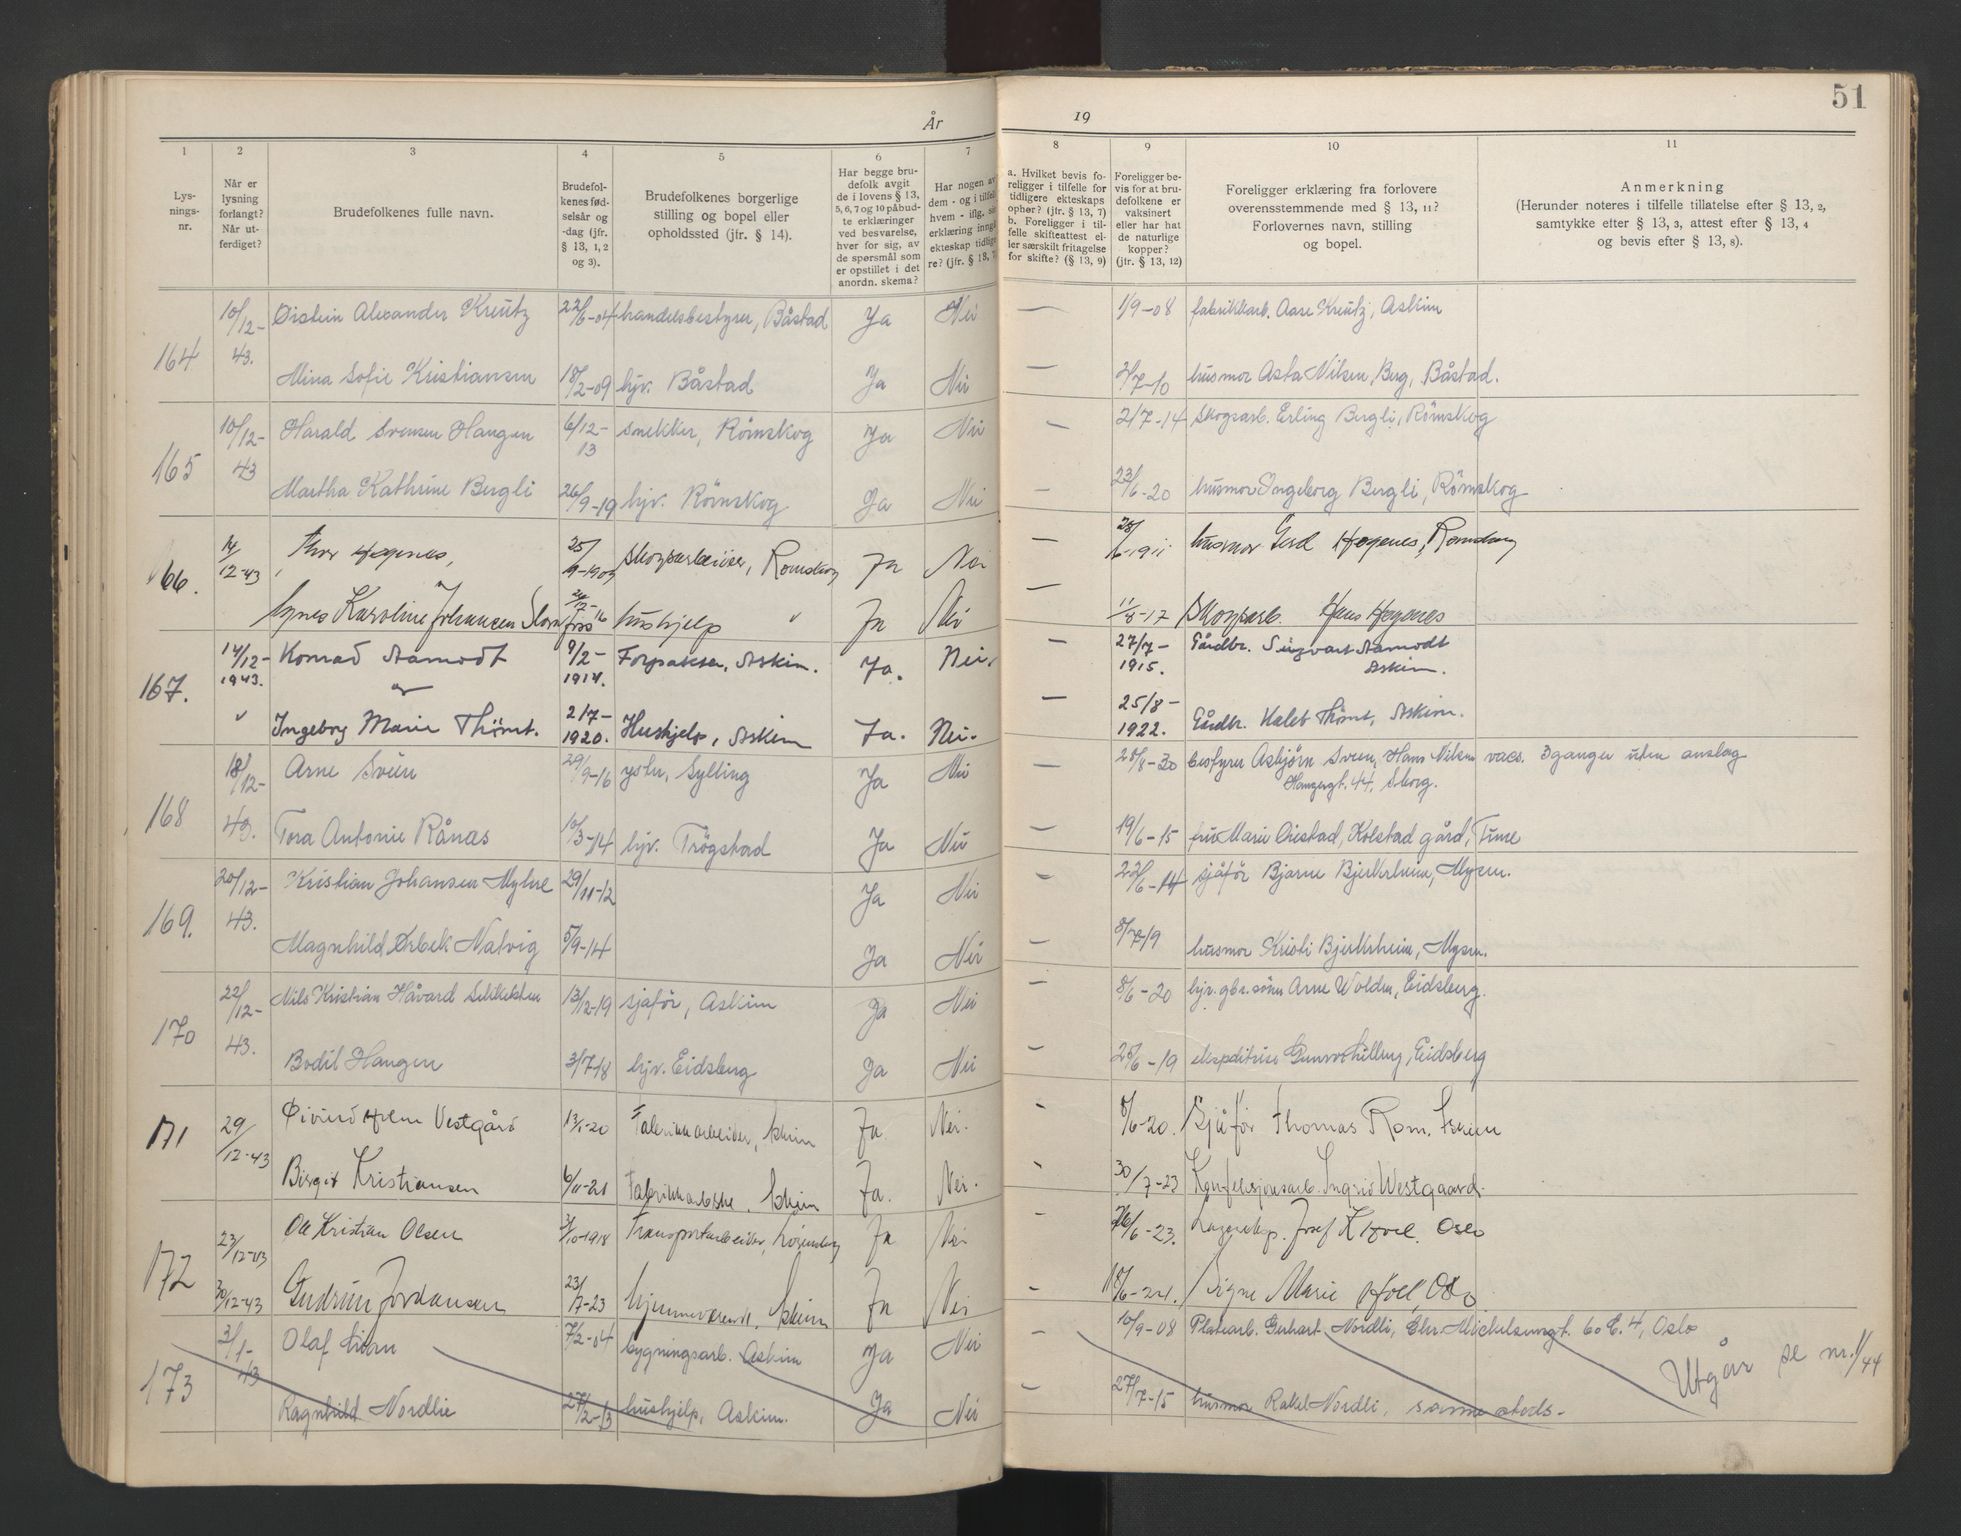 51
År
19
1 2 3 4 5 6 7 8 9 10 11
Lys-
nings-
nr.
Når er
lysning
forlangt?
Når ut-
ferdiget?
Brudefolkenes fulle navn.
Brudefol-
kenes fød-
selsår og
-dag (jfr.
§ 13, 1, 2
og 3).
Brudefolkenes borgerlige
stilling og bopel eller
opholdssted (jfr. § 14).
Har begge bru-
defolk avgit
de i lovens § 13,
5, 6, 7 og 10 påbud-
te erklæringer
ved besvarelse,
hver for sig, av
de spørsmål som
er opstillet i det
anordn. skema?
Har nogen av
dem - og i tilfell
hvem - iflg. sin
erklæring inngå
ekteskap tidlige
re? (jfr. § 13, 7
a. Hvilket bevis fo-
religger i tilfelle for
tidligere ekteskaps
ophør? (jfr. § 13, 7)
b. Foreligger i til-
felle skifteattest el-
ler særskilt fritagelse
for skifte? (§ 13, 9)
Foreligger be-
vis for at bru-
defolkene er
vaksinert
eller har hat
de naturlige
kopper?
(jfr. § 13, 12)
Foreligger erklæring fra forlovere
overensstemmende med § 13, 11?
Forlovernes navn, stilling
og bopel.
Anmerkning
(Herunder noteres i tilfelle tillatelse efter § 13, 2,
samtykke efter § 13, 3, attest efter § 13, 4
og bevis efter § 13, 8).
164 10/12-43. Øistein Alexander Kreutz 22/6-04 handelsbestyrer, Båstad Ja Nei — 1/9-08 fabrikkarb. Aase Kreutz, Askim
Mina Sofie Kristiansen 18/2-09 hjv. Båstad Ja Nei — 2/7-10 husmor Asta Nilsen, Berg, Båstad.
165 10/12-43 Harald Svensen Haugen 6/12-13 snekker, Römskog Ja Nei — 2/7-14 Skogsarb. Erling Bergli, Römskog
Martha Kathrine Bergli 26/9-19 hjv. Römskog Ja Nei — 23/6-20 husmor Ingeborg Bergli, Römskog
166. 14/12-43 Thor Høgenes, 25/9-1909 Skogsarbeider, Romskog Ja Nei — 28/6-1911 husmor Gerd Høgenes, Romskog
Karoline Johansen hushjelp " Ja Nei — 11/8-17 Skogsarb. Hans Høgenes
167. 14/12-1943. Konrad Aamodt 9/2-1914. Forpakter, Askim. Ja. Nei. — 27/7-1915. Gårdbr. Sigvart Aamodt
Askim.
og
" Ingeborg Marie Thömt. 2/7-1920. Hushjelp, Askim Ja. Nei. — 25/8-1922. Gårdbr. Kaleb Thömt, Askim.
168 18/12-43. Arne Sveen 29/9-16 yster, Sylling Ja Nei — 28/8-30 bestyrer Asbjørn Sveen, Hans Nilsen vaes. 3 ganger uten anslag
Haugesgt. 44, Sborg.
Tora Antonie Rånås 10/3-14 hjv. Trögstad Ja Nei — 19/6-15 fru Marie Oustad, Kolstad gård, Tune
169. 20/12-43. Kristian Johansen Myhre 29/11-12 Ja Nei — 22/6-14 sjåför Bjarne Bjerkeheim, Mysen.
Magnhild Ørbek Natvig 5/9-14 Ja Nei — 8/7-19 husmor Kristi Bjerkeheim, Mysen.
170 22/12-43. Nils Kristian Håvard 13/12-19 sjåför, Askim Ja Nei — 8/6-20 hjv. gbr.sönn Arne Volden, Eidsberg.
Bodil Haugen 3/7-18 hjv. Eidsberg Ja Nei — 28/6-19 ekspeditrise Gunvor Eidsberg
171 29/12-43 Øivind Holm Vestgård 13/1-20 Fabrikkarbeider, Askim Ja Nei. - 8/6-20. Sjåför Thomas Rom. Askim
Birgit Kristiansen 6/11-21 Fabrikkarbeiderske, Askim Ja. Nei. - 30/7-23 Konfeksjonsarb. Ingrid Westgaard.
172 23/12-43 Ole Kristian Olsen 3/10-1918 Transportarbeider, Ja Nei - 26/6-23. Lagereksp. Josef Hoel. Oslo
30/12-43 Gudrun Jordansen 23/7-23 hjemmeværende. Askim Ja Nei — 18/6-24. Signe Marie Hoel, Oslo
173 3/1-43 Olaf 7/2-04 bygningsarb. Askim Ja Nei — 10/9-08 Platearb. Gerhart Nordli, Chr. Michelsensgt. 60 E. 4, Oslo
Ragnhild Nordlie 27/2-13 hushjelp, Askim. Ja Nei — 27/7-15 husmor Rakel Nordli, samme steds. Utgår se nr. 1/44